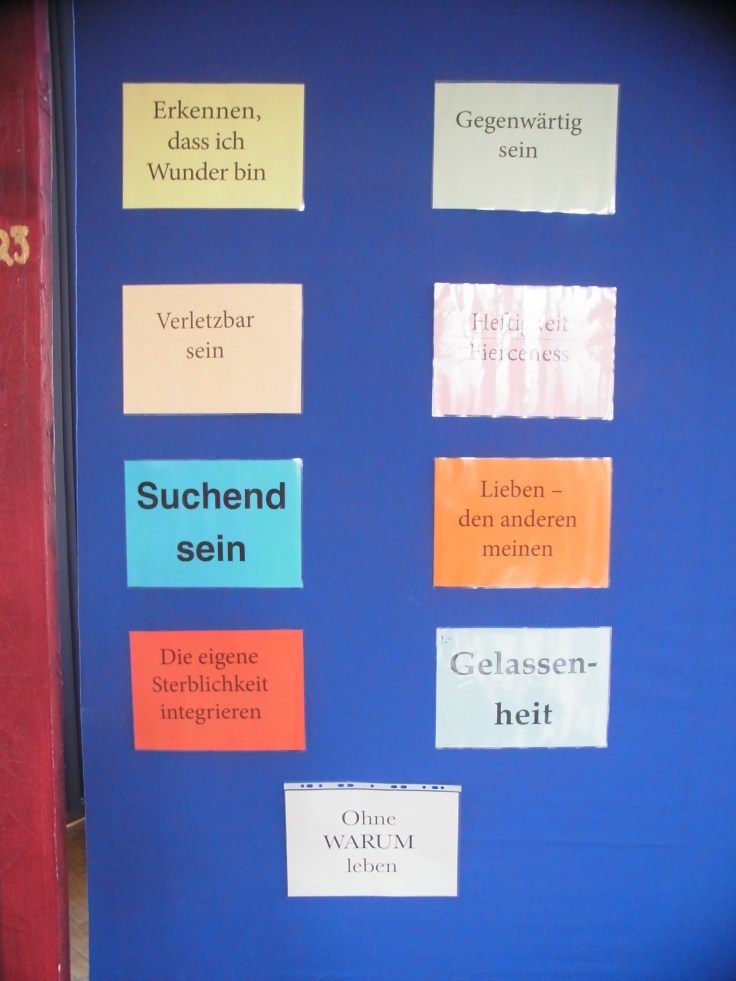 Erkennen,
dass ich
Wunder bin
Gegenwärtig
sein
23
Verletzbar
sein
Heftigkeit
Fierceness
Suchend
sein
Lieben –
den anderen
meinen
Die eigene
Sterblichkeit
integrieren
Gelassen-
heit
Ohne
WARUM
leben